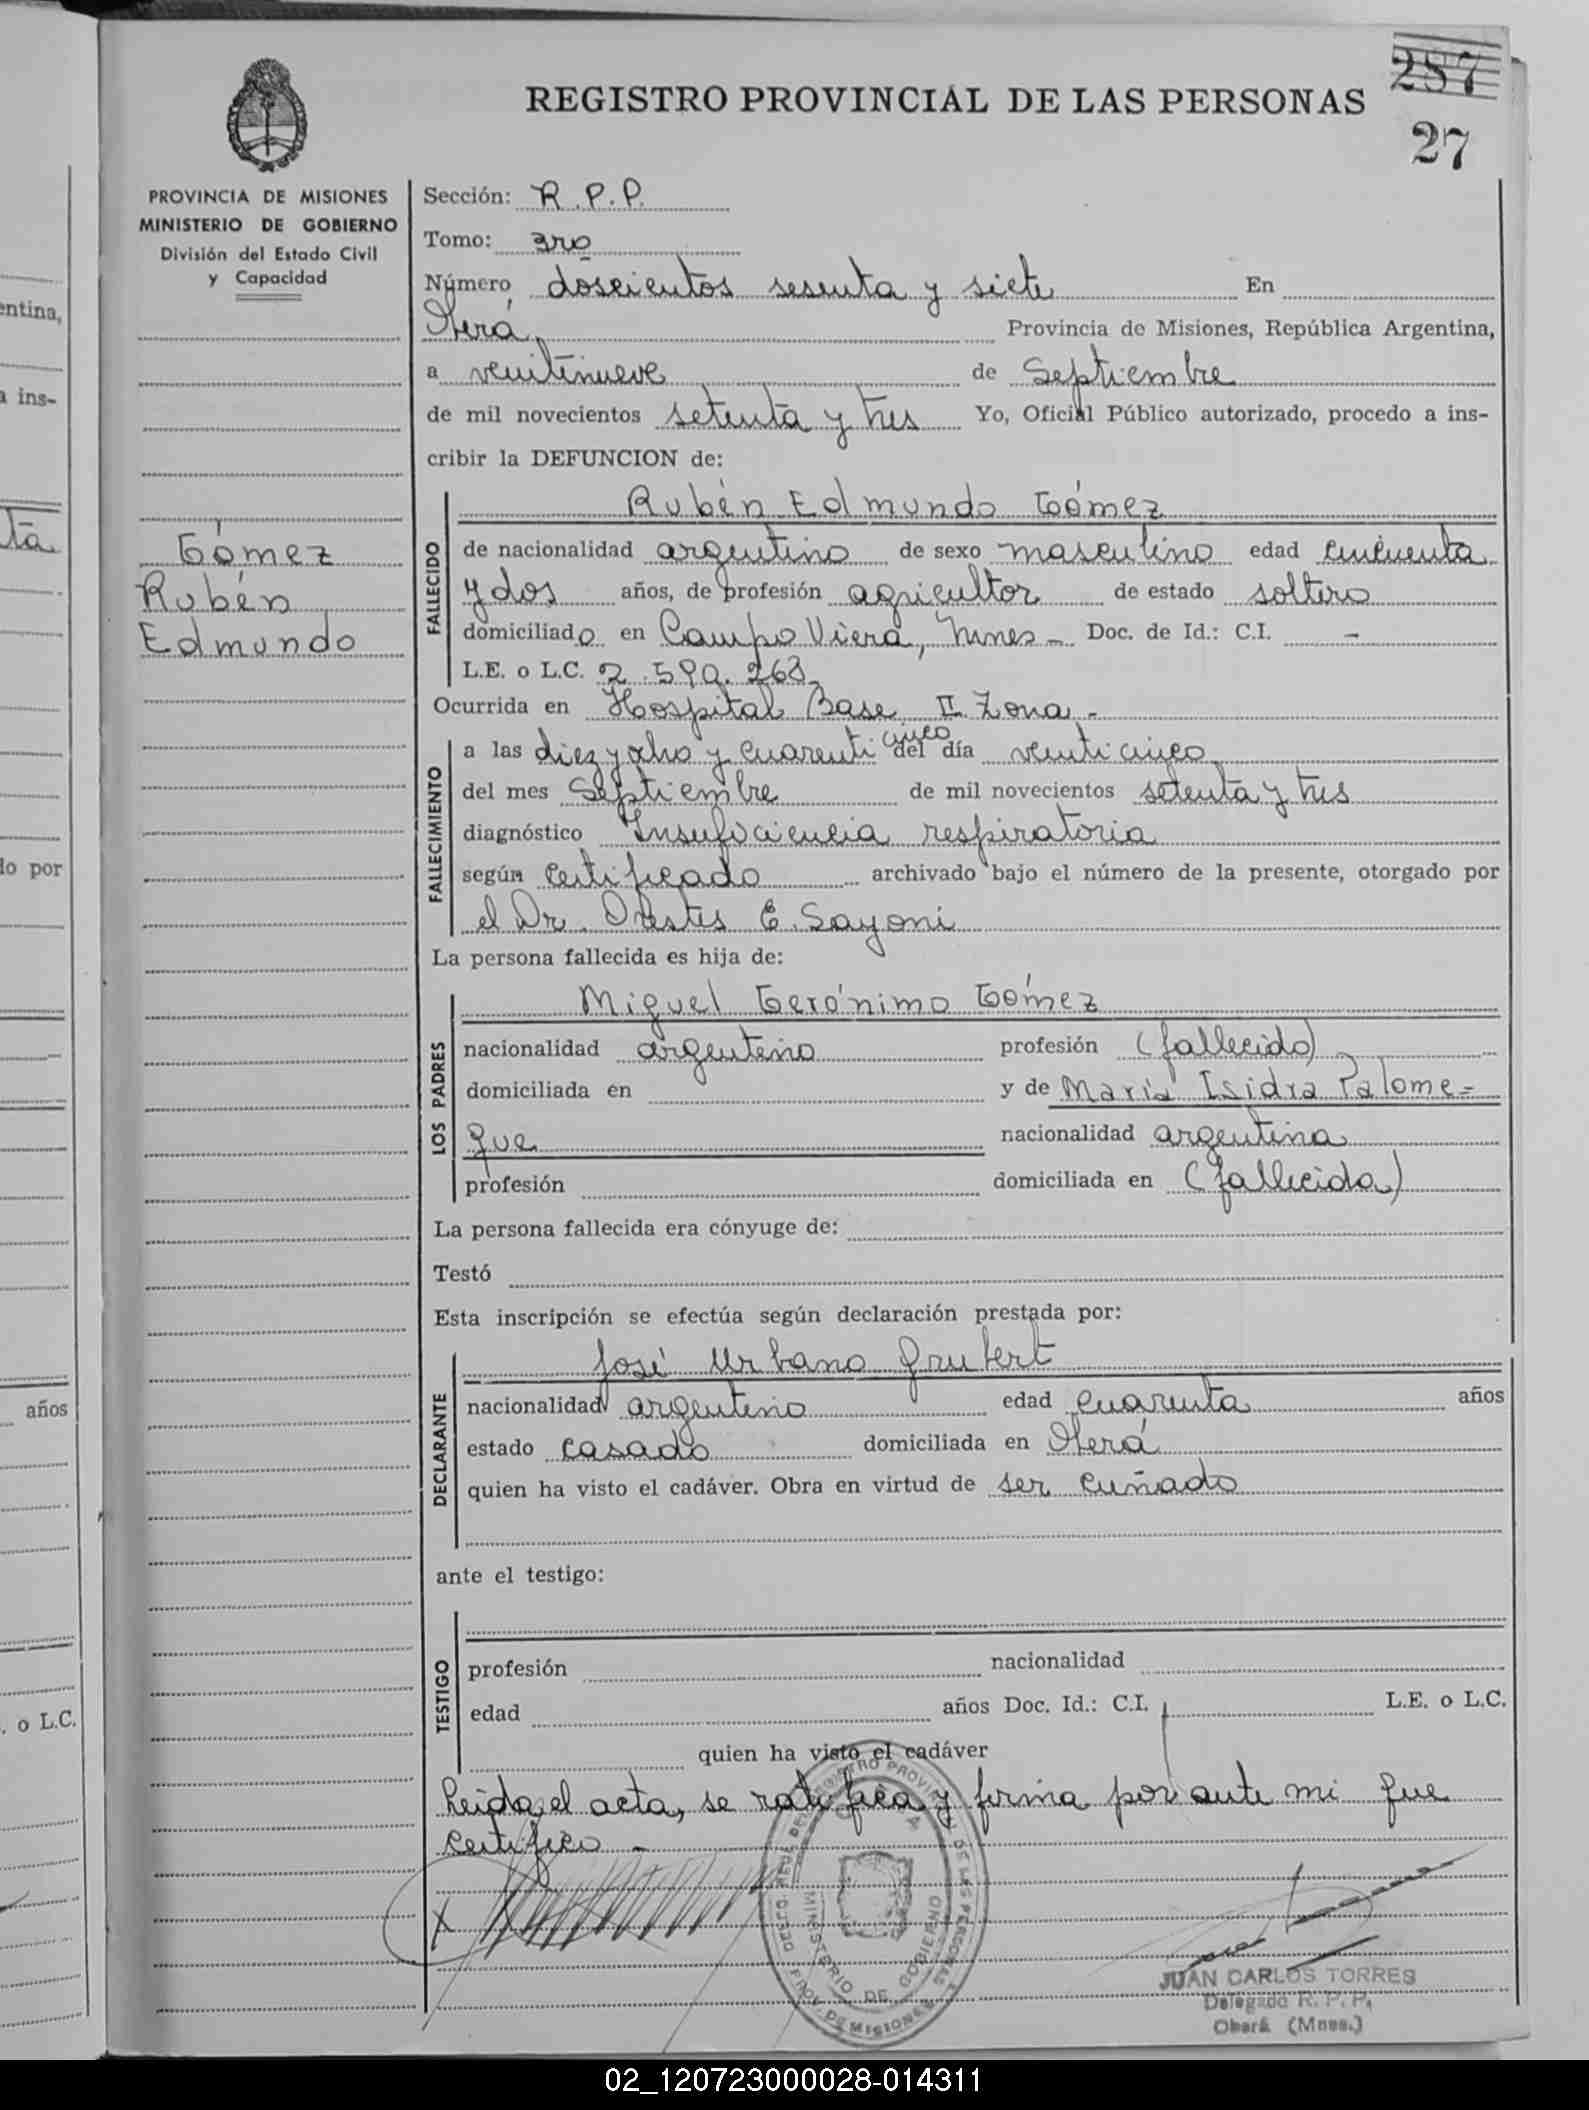 287
27
REGISTRO PROVINCIAL DE LAS PERSONAS
PROVINCIA DE MISIONES
MINISTERIO DE GOBIERNO
División del Estado Civil
y Capacidad
Gómez
Rubén
Edmundo
Sección: R.P.P.
Tomo: 3ro
Número doscientos sesenta y siete En
Oberá, Provincia de Misiones, República Argentina,
a veintinueve de Septiembre
de mil novecientos setenta y tres Yo, Oficial Público autorizado, procedo a ins-
cribir la DEFUNCION de:
FALLECIDO
Rubén Edmundo Gómez
de nacionalidad argentino de sexo masculino edad cincuenta
y dos años, de profesión agricultor de estado soltero
domiciliado en Campo Viera, Mnes - Doc. de Id.: C.I. -
L.E. o L.C.
Ocurrida en Hospital Base II Zona -
FALLECIMIENTO
a las diez y ocho y cuarenti cinco del día veinticinco
del mes Septiembre de mil novecientos setenta y tres
diagnóstico Insuficiencia respiratoria
según certificado archivado bajo el número de la presente, otorgado por
el Dr. Orestes E. Sayoni
La persona fallecida es hija de:
LOS PADRES
Miguel Gerónimo Gómez
nacionalidad argentino profesión (fallecido)
domiciliada en y de María Isidra Palome=
que nacionalidad argentina
profesión domiciliada en (fallecida)
La persona fallecida era cónyuge de:
Testó
Esta inscripción se efectúa según declaración prestada por:
DECLARANTE
José Urbano Grubert
nacionalidad argentino edad cuarenta años
estado casado domiciliada en Oberá
quien ha visto el cadáver. Obra en virtud de ser cuñado
ante el testigo:
TESTIGO
profesión nacionalidad
edad años Doc. Id.: C.I. L.E. o L.C.
quien ha visto el cadáver
Leida el acta, se ratifica y firma por ante mi que
certifico -
X
MINISTERIO DE GOBIERNO
JUAN CARLOS TORRES
Delegado R. P. P.
Oberá (Mnes.)
entina,
a ins-
ta
lo por
años
. o L.C.
02_120723000028-014311